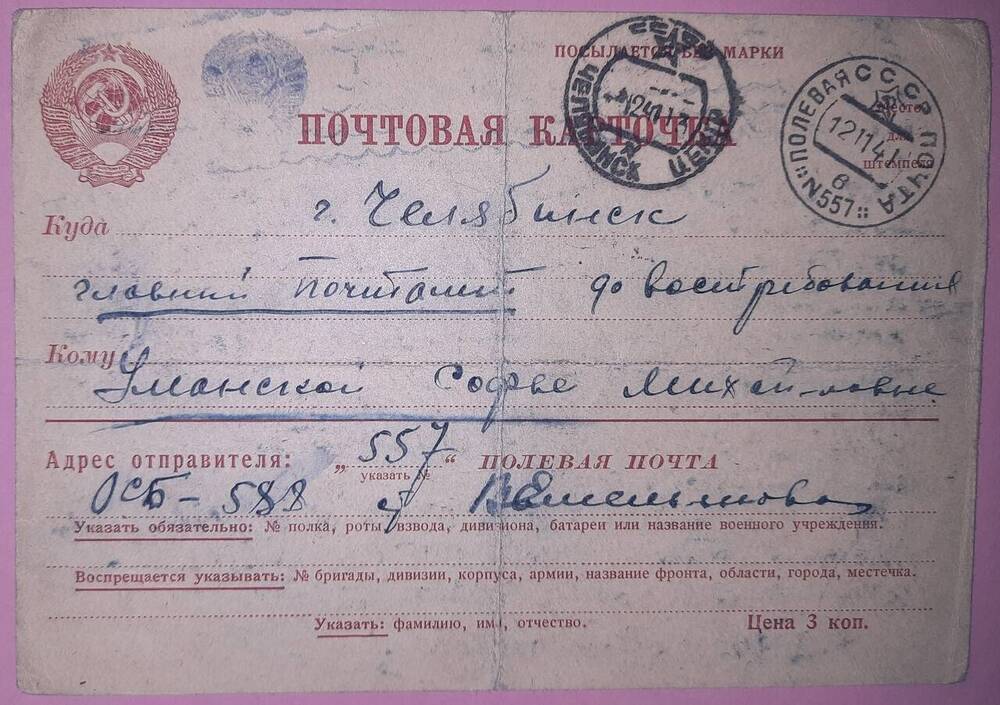 ПОСЫЛАЕТСЯ БЕЗ МАРКИ
ПОЧТОВАЯ КАРТОЧКА
СССР ЧЕЛЯБИНСК ЦЕНТР
СССР ПОЛЕВАЯ ПОЧТА №557
12 11 41
6
штемпеля
Куда г. Челябинск
главный почтамт до востребования
Кому
Софье Михайловне
Адрес отправителя: „557“ ПОЛЕВАЯ ПОЧТА
указать №
ОСБ-588
Указать обязательно: № полка, роты, взвода, дивизиона, батареи или название военного учреждения.
Воспрещается указывать: № бригады, дивизии, корпуса, армии, название фронта, области, города, местечка.
Указать: фамилию, имя, отчество. Цена 3 коп.